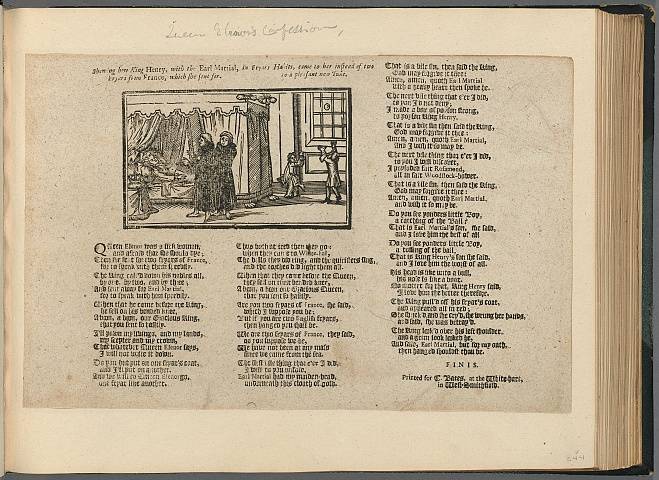 Queen Elenor's Confession,
Shewing how King Henry, with the Earl Martial, in Fryars Habits, came to her instead of two
Fryars from France, which she sent for. to a pleasant new Tune.
Queen Elenor was a sick woman,
and afraid that she should dye;
Then she sent for two fryars of France,
for to speak with them speedily.
The King call'd down his nobles all,
by one, by two, and by three,
And sent away for Earl Martial,
for to speak with him speedily.
When that he came before the King,
he fell on his bended knee,
A boon, a boon, our Gracious King,
that you sent so hastily.
I'll pawn my livings, and my lands,
my scepter and my crown,
That whatever Queen Elenor says,
I will not write it down.
Do you put on one fryar's coat,
and I'll put on another.
And we will to Queen Elenor go,
one fryar like another.
Thus both attired then they go:
when they came to White-hall,
The bells they did ring, and the quiristers sing,
and the torches did light them all.
When that they came before the Queen,
they fell on their bended knee,
A boon, a boon our Gracious Queen,
that you sent so hastily.
Are you two fryars of France, she said,
which I suppose you be:
But if you are two English fryars,
then hanged you shall be.
We are two fryars of France, they said,
as you suppose we be,
We have not been at any mass
since we came from the sea.
The first vile thing that e'er I did,
I will to you unfold,
Earl Martial had my maiden-head,
underneath this cloath of gold.
That is a vile sin, then said the King,
God may forgive it thee:
Amen, amen, quoth Earl Martial
with a heavy heart then spoke he.
The next vile thing that e'er I did,
to you I'll not deny,
I made a box of poyson strong,
to poyson King Henry.
That is a vile sin then said the King,
God may forgive it thee:
Amen, amen, quoth Earl Martial,
And I wish it so may be.
The next vile thing that e'er I did,
to you I will discover,
I poysoned fair Rosamond,
all in fair Woodstock-bower.
That is a vile sin, then said the King,
God may forgive it thee:
Amen, amen, quoth Earl Martial,
and wish it so may be.
Do you see yonders little Boy,
a tossing of the Ball?
That is Earl Martial's son, she said,
and I love him the best of all.
Do you see yonders little Boy,
a tossing of the ball,
That is King Henry's son she said,
and I love him the worst of all.
His head is like unto a bull,
his nose is like a boar,
No matter for that, King Henry said,
I love him the better therefore.
The King pull'd off his fryar's coat,
and appeared all in red;
She shriek'd and she cry'd, she wrung her hands,
and said, she was betray'd.
The King look'd over his left shoulder,
and a grim look looked he,
And said, Earl Martial, but for my oath,
then hanged shouldst thou be.
FINIS.
Printed for C. Bates, at the White-hart,
in West-Smithfield.